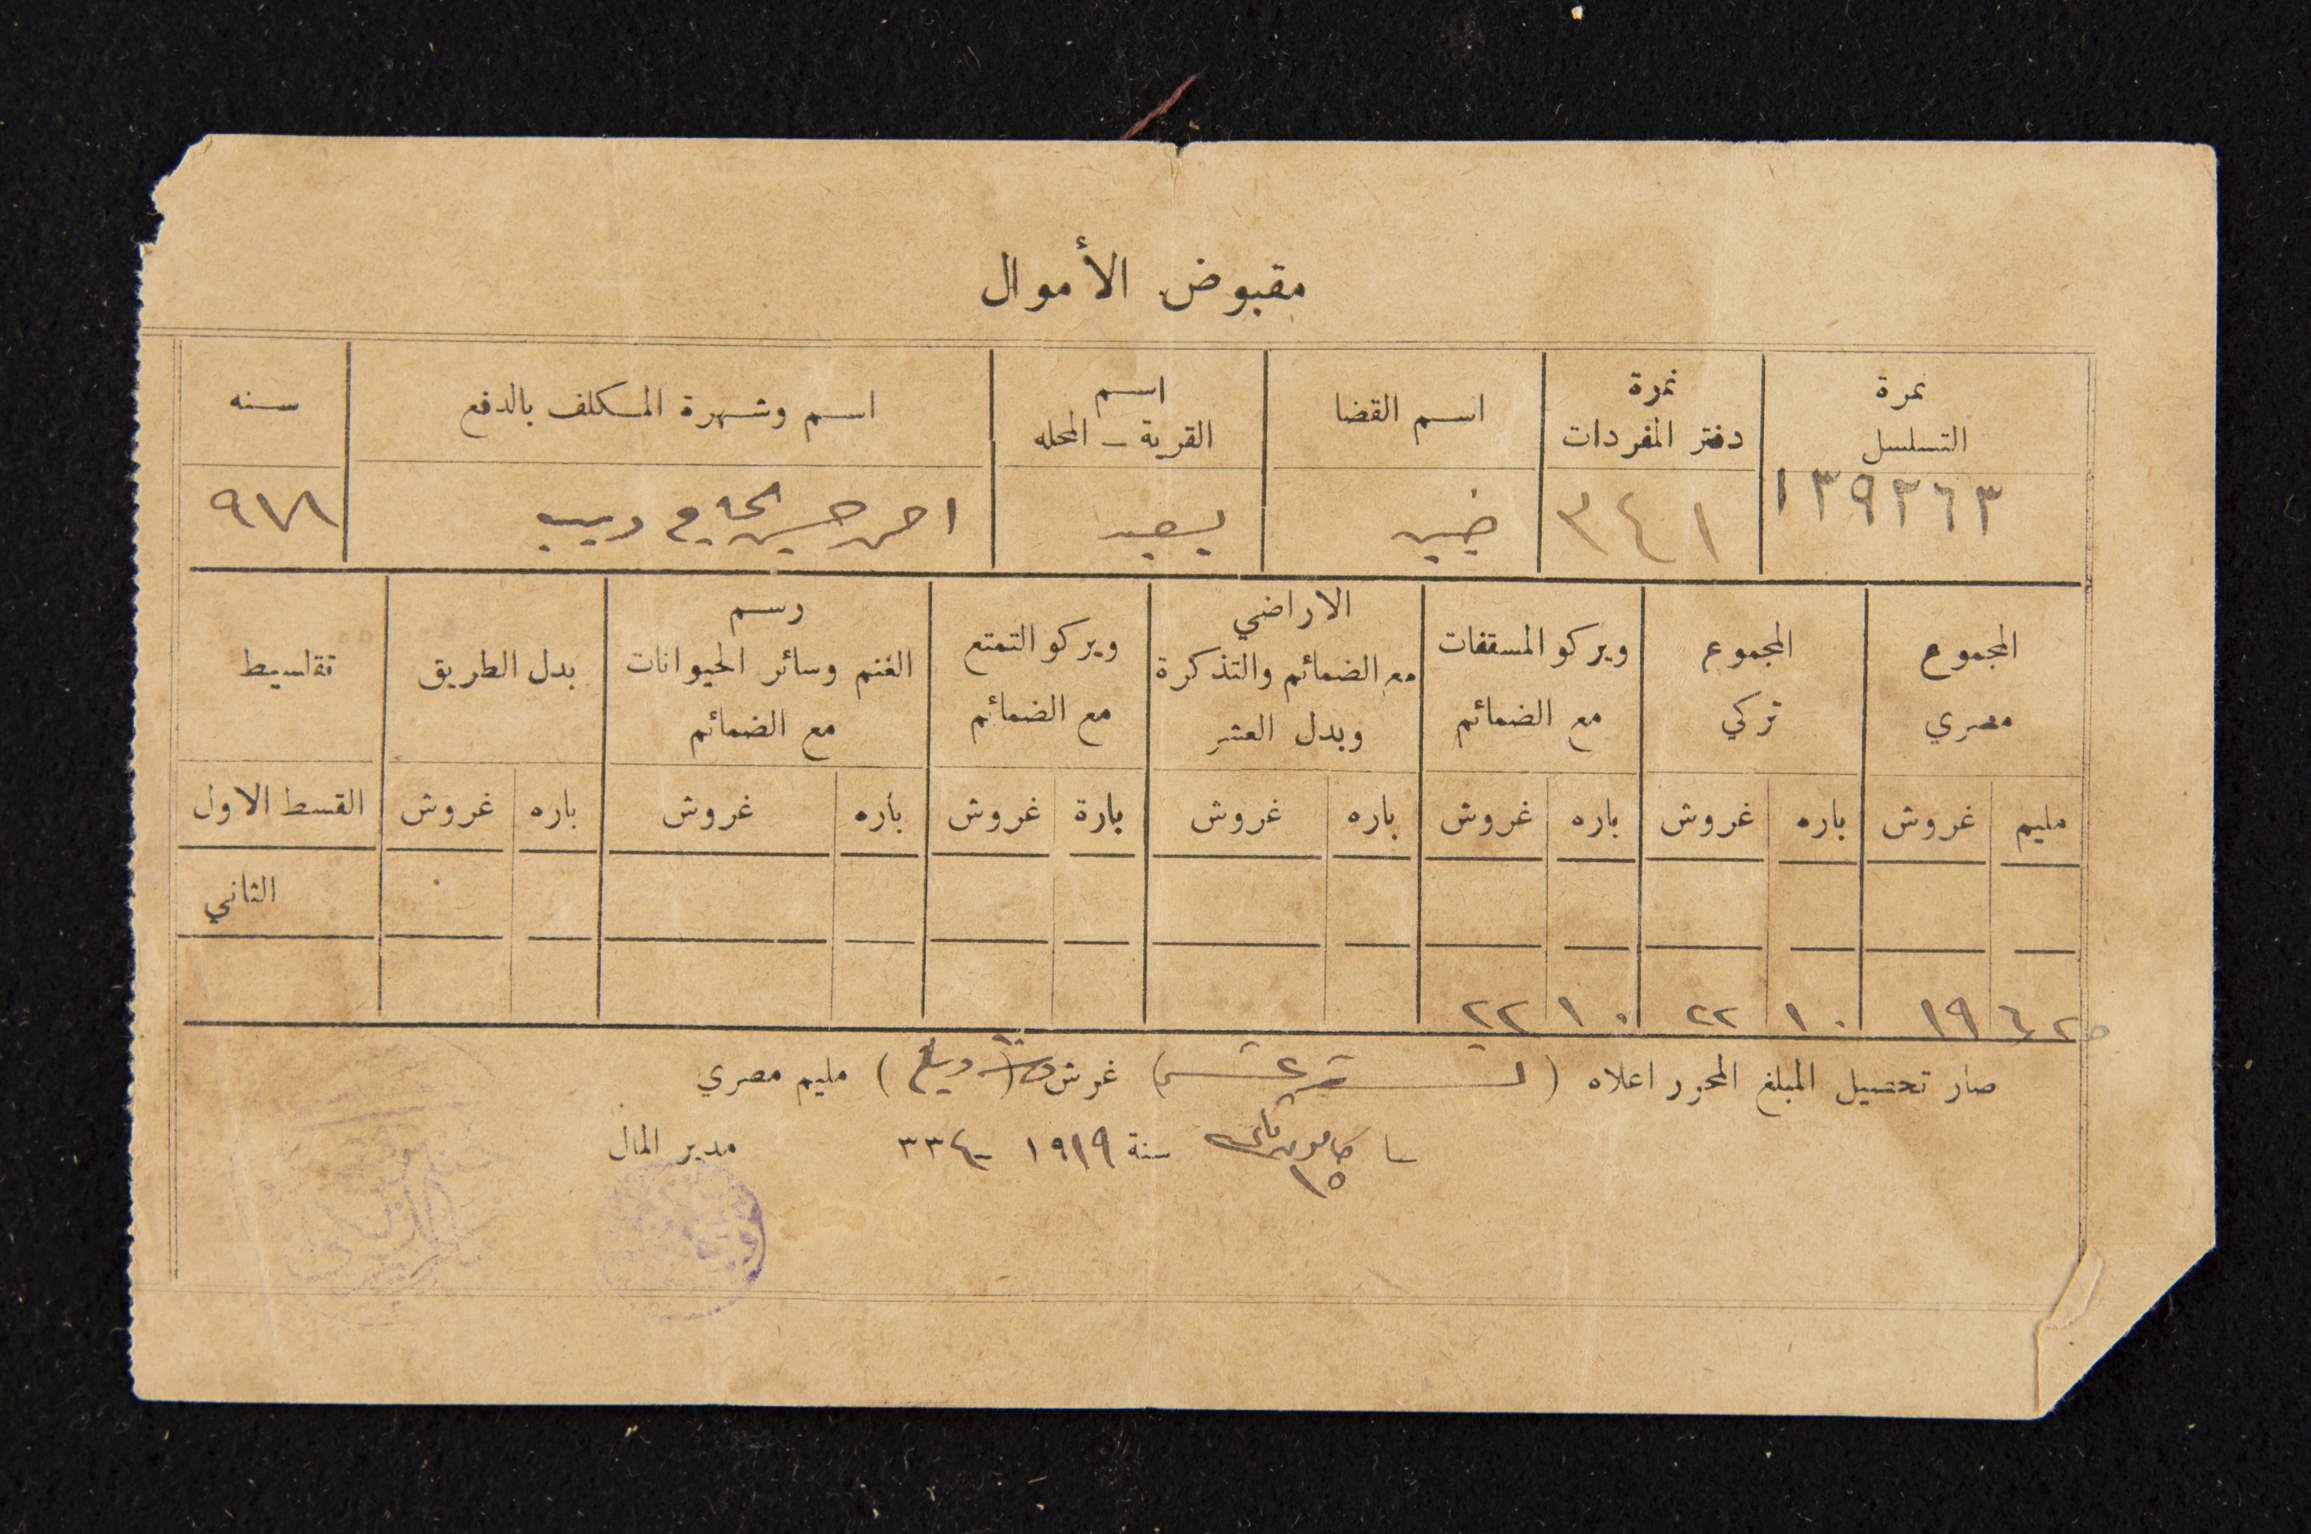 مقبوض الأموال
نمرة التسلسل
نمرة دفتر المفردات
اسم القضا
اسم القرية – المحله
اسم وشهرة المكلف بالدفع
سنه
١٣٩٢٦٣
٣٤١
احمد حسين الحاج ديب
المجموع مصري
المجموع تركي
ويركو المسقفات مع الضمائم
الاراضي مع الضمائم والتذكرة وبدل العشر
ويركو التمتع مع الضمائم
رسم الغنم وسائر الحيوانات مع الضمائم
بدل الطريق
تقاسيط
مليم غروش باره غروش باره غروش باره غروش بارة غروش باره غروش باره غروش القسط الاول
الثاني
١٩ ١٠ ٢٢ ١٠ ٢٢
صار تحصيل المبلغ المحرر اعلاه ( تسعة عشر ) غرش ( ) مليم مصري
١٥ سنة ١٩١٩ مدير المال